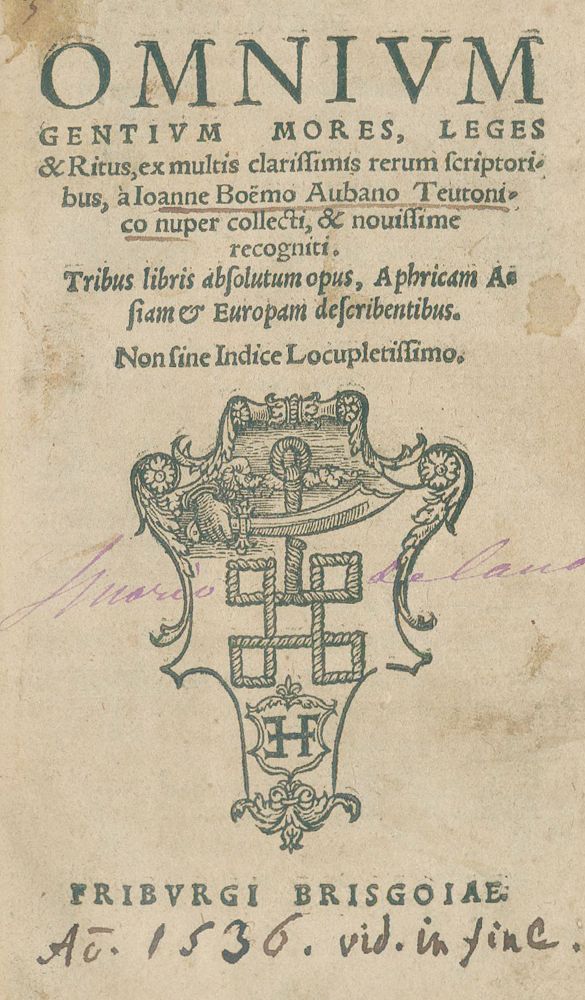 OMNIVM
GENTIVM MORES, LEGES
& Ritus, ex multis clarissimis rerum scriptori-
bus, à Ioanne Boëmo Aubano Teutoni-
co nuper collecti, & nouissime
recogniti.
Tribus libris absolutum opus, Aphricam A-
siam & Europam describentibus.
Non sine Indice Locupletissimo.
FRIBVRGI BRISGOIAE.
Aō. 1536. vid. in fine.